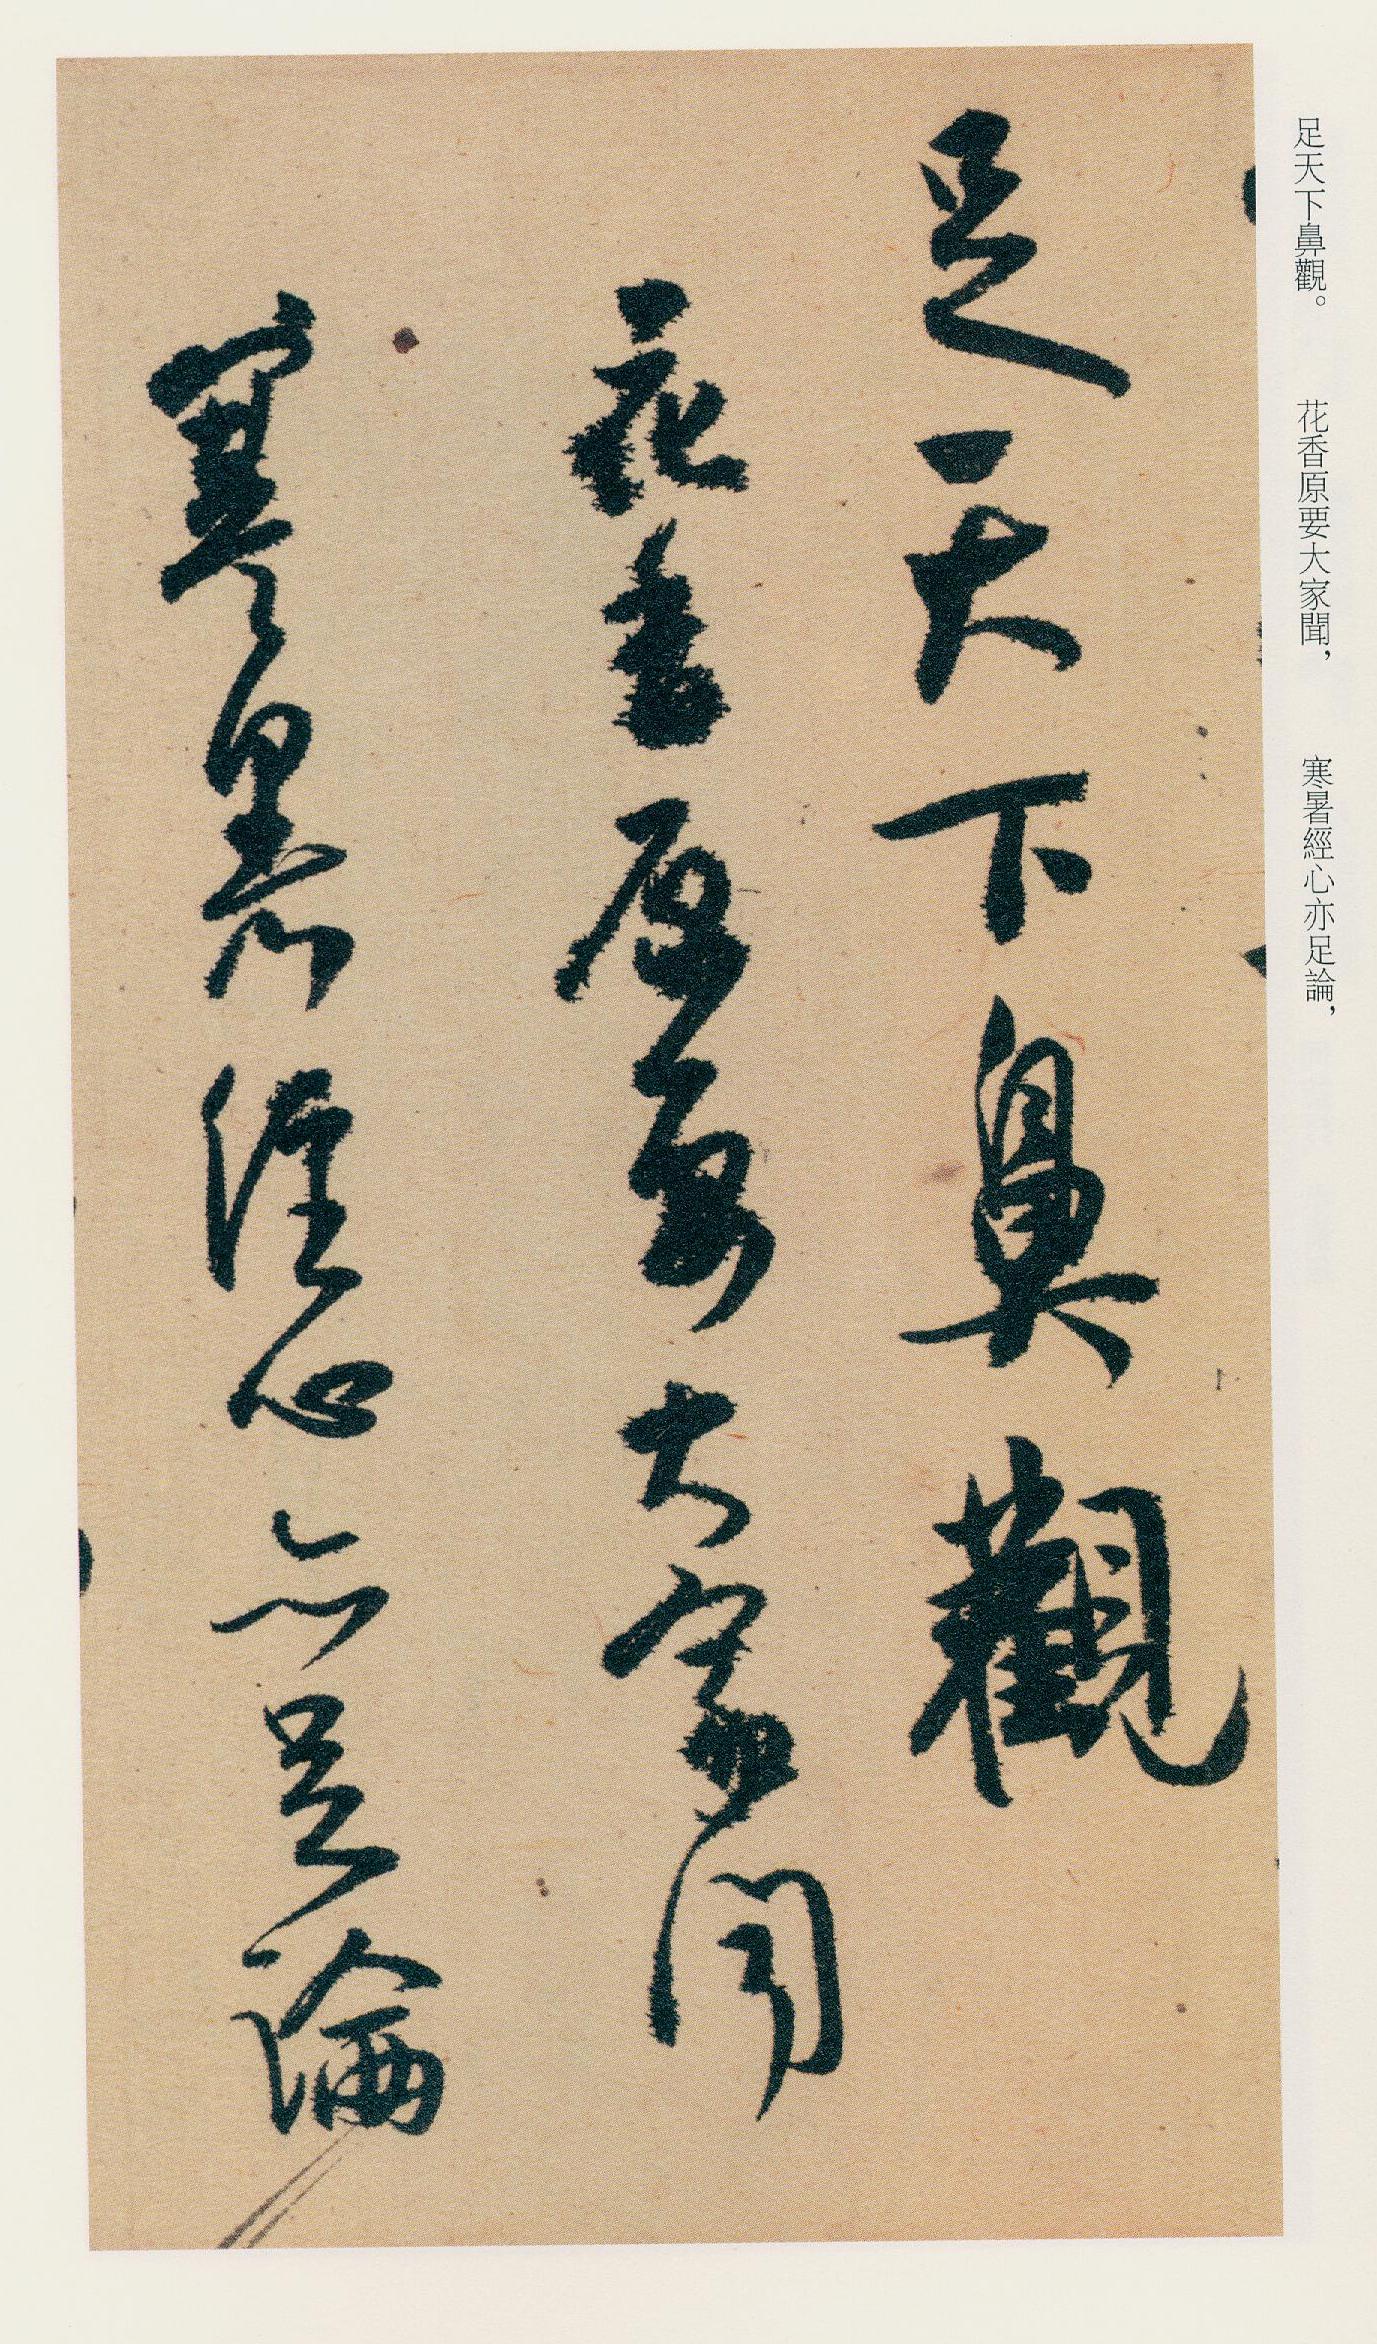 足天下鼻觀。 花香原要大家聞， 寒暑經心亦足論，
足天下鼻觀
花香原要大家聞
寒暑經心亦足論